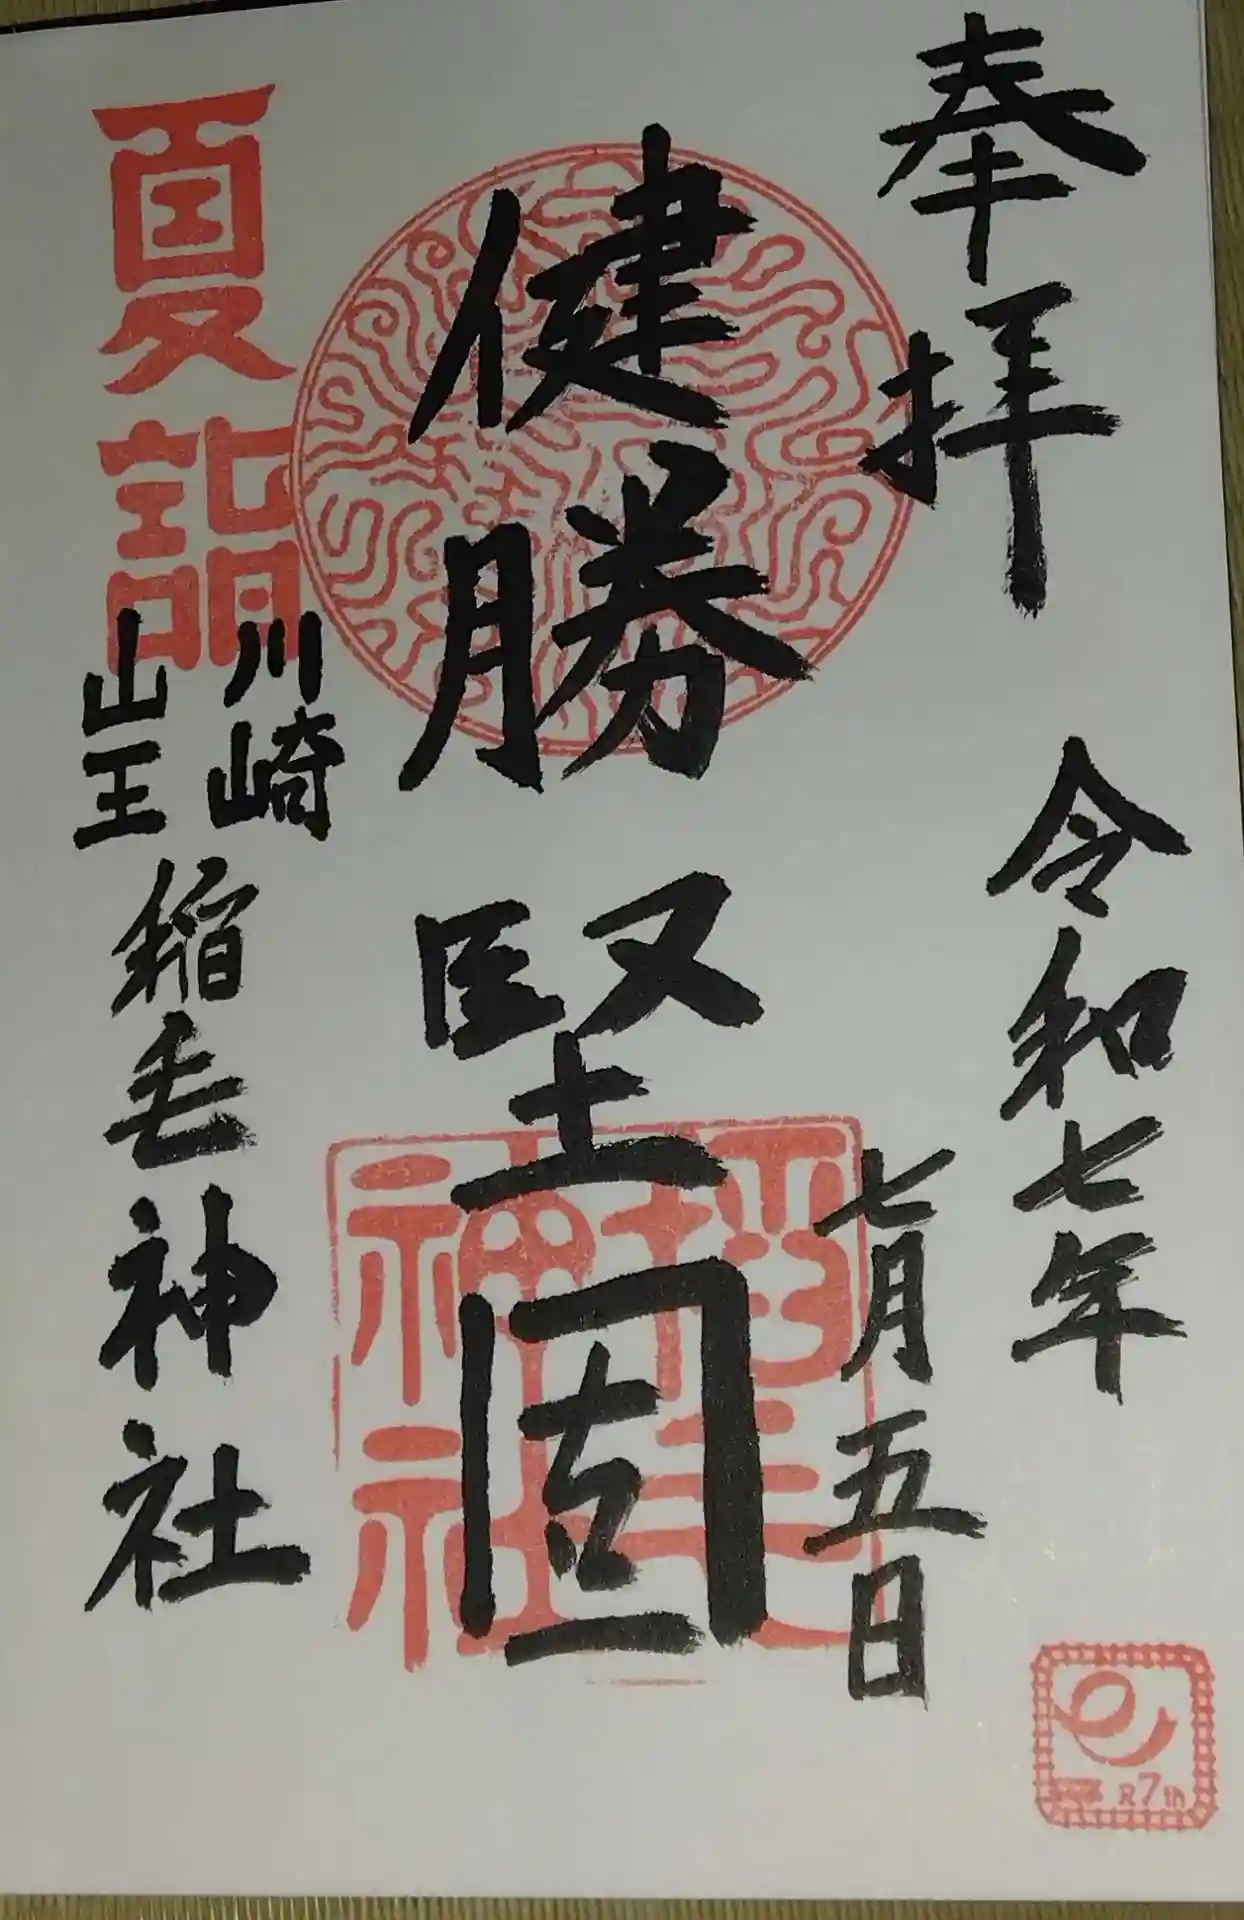 奉拝
令和七年
七月五日
健勝
堅固
夏詣
川崎
山王
稲毛神社
稲毛
神社
R7th